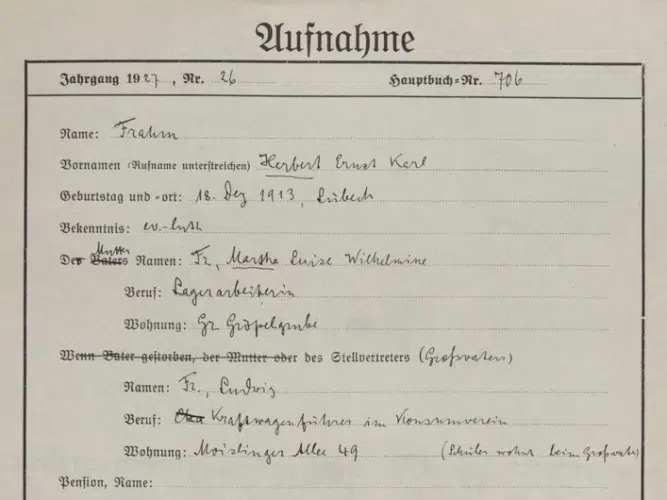 Aufnahme
Jahrgang 1927, Nr. 26 Hauptbuch=Nr. 706
Name: Frahm
Vornamen (Rufname unterstreichen) Herbert Ernst Karl
Geburtstag und =ort: 18. Dez 1913, Lübeck
Bekenntnis: ev.-luth
Mutter
Der Vaters Namen: Fr, Martha Luise Wilhelmine
Beruf: Lagerarbeiterin
Wohnung: Gr Gröpelgrube
Wenn Vater gestorben, der Mutter oder des Stellvertreters (Großvaters)
Namen: Fr., Ludwig
Beruf: Kraftwagenführer im Konsumverein
Wohnung: Moislinger Allee 49 (Schüler wohnt beim Großvater)
Pension, Name: